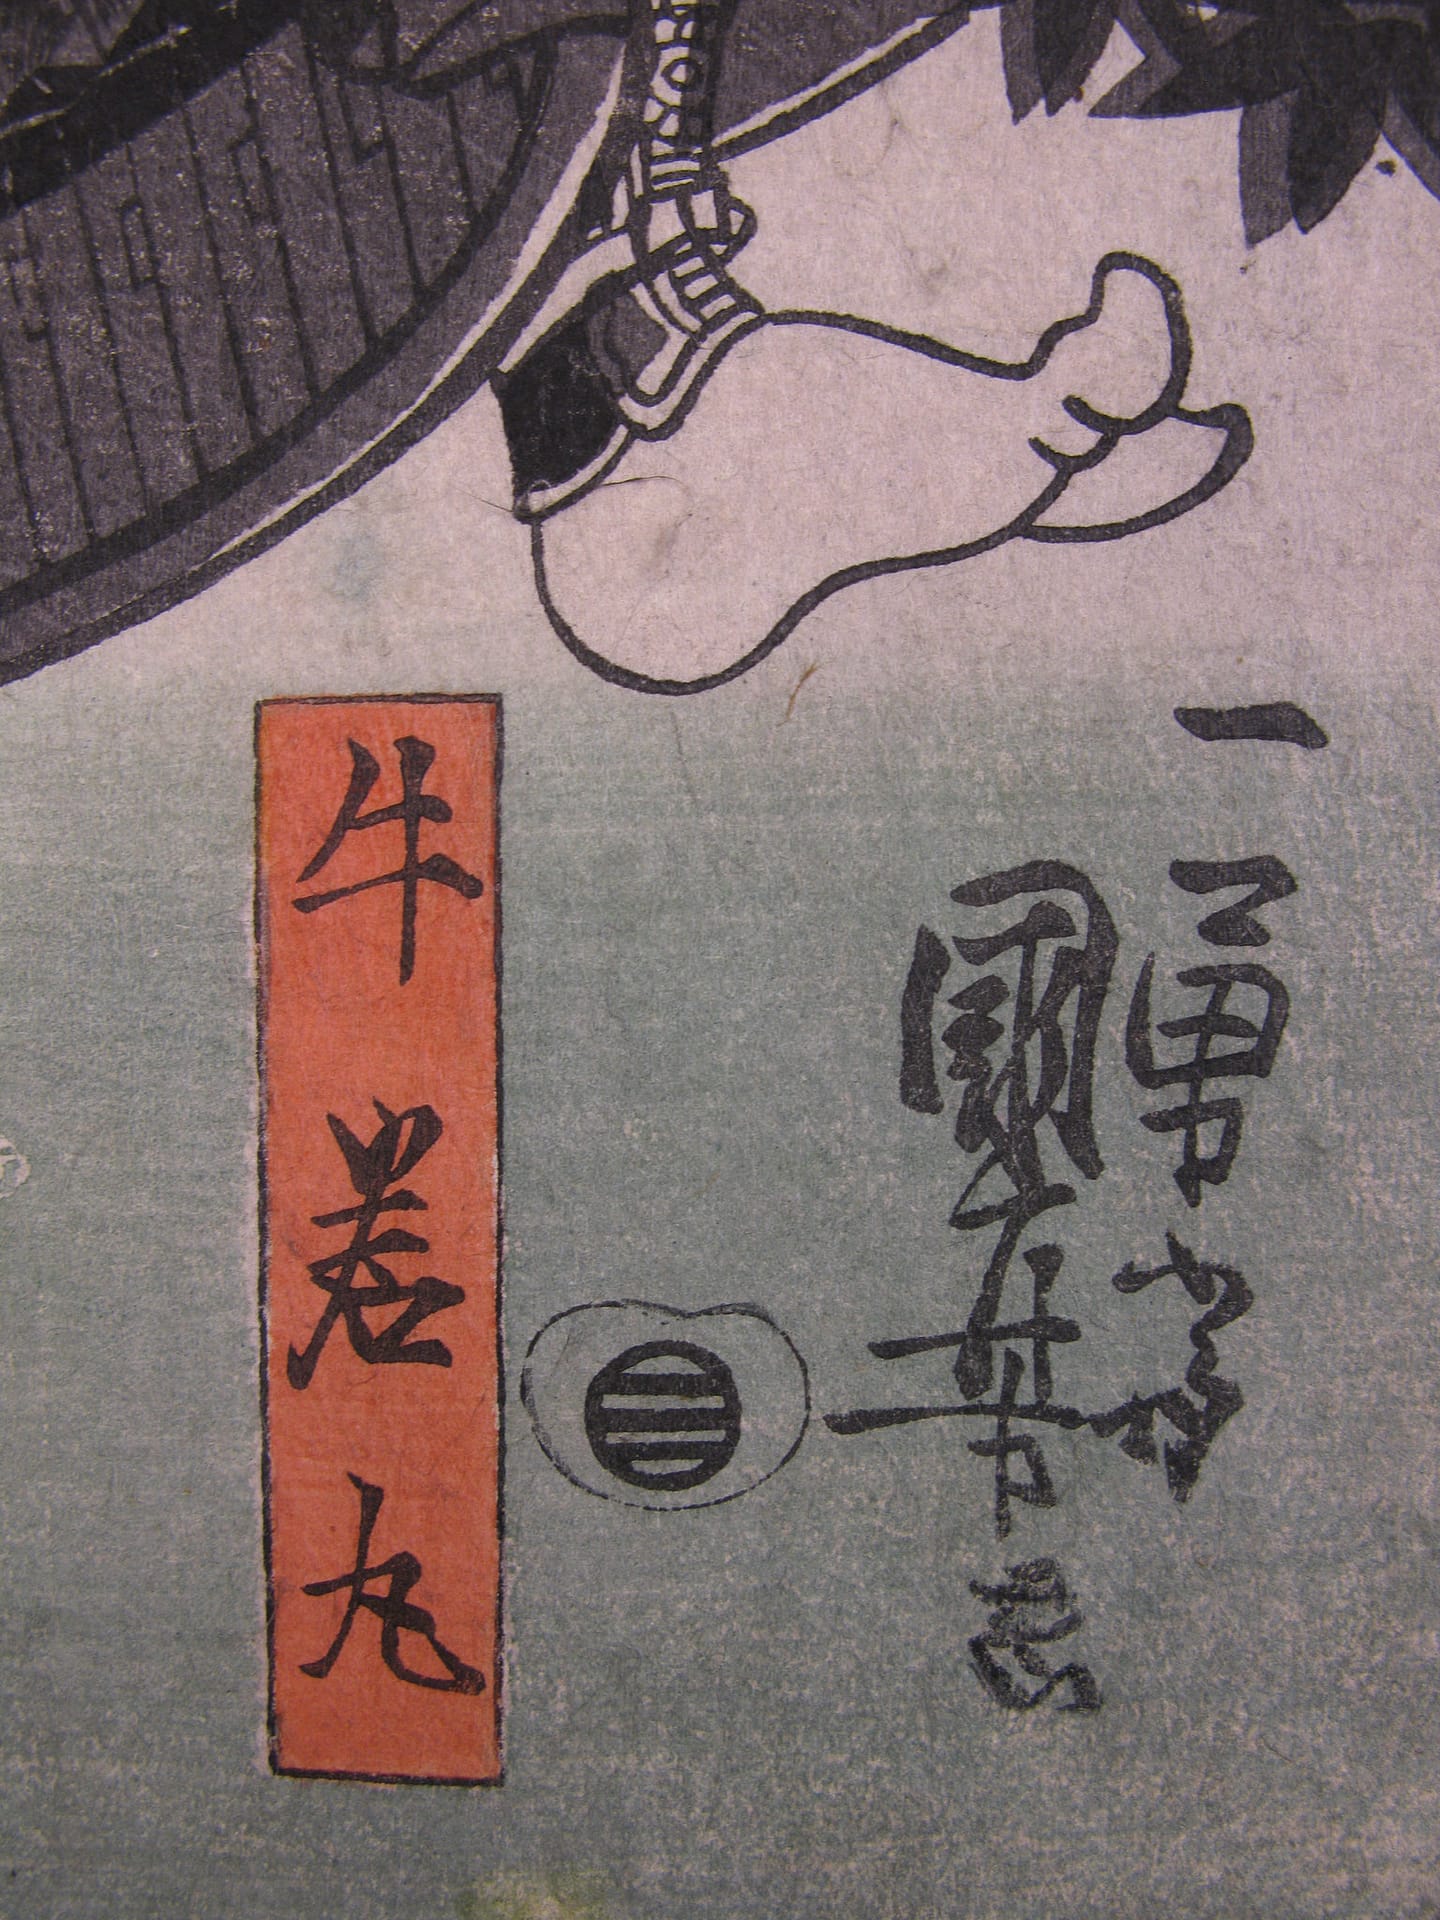 一勇斎
國芳画
牛若丸